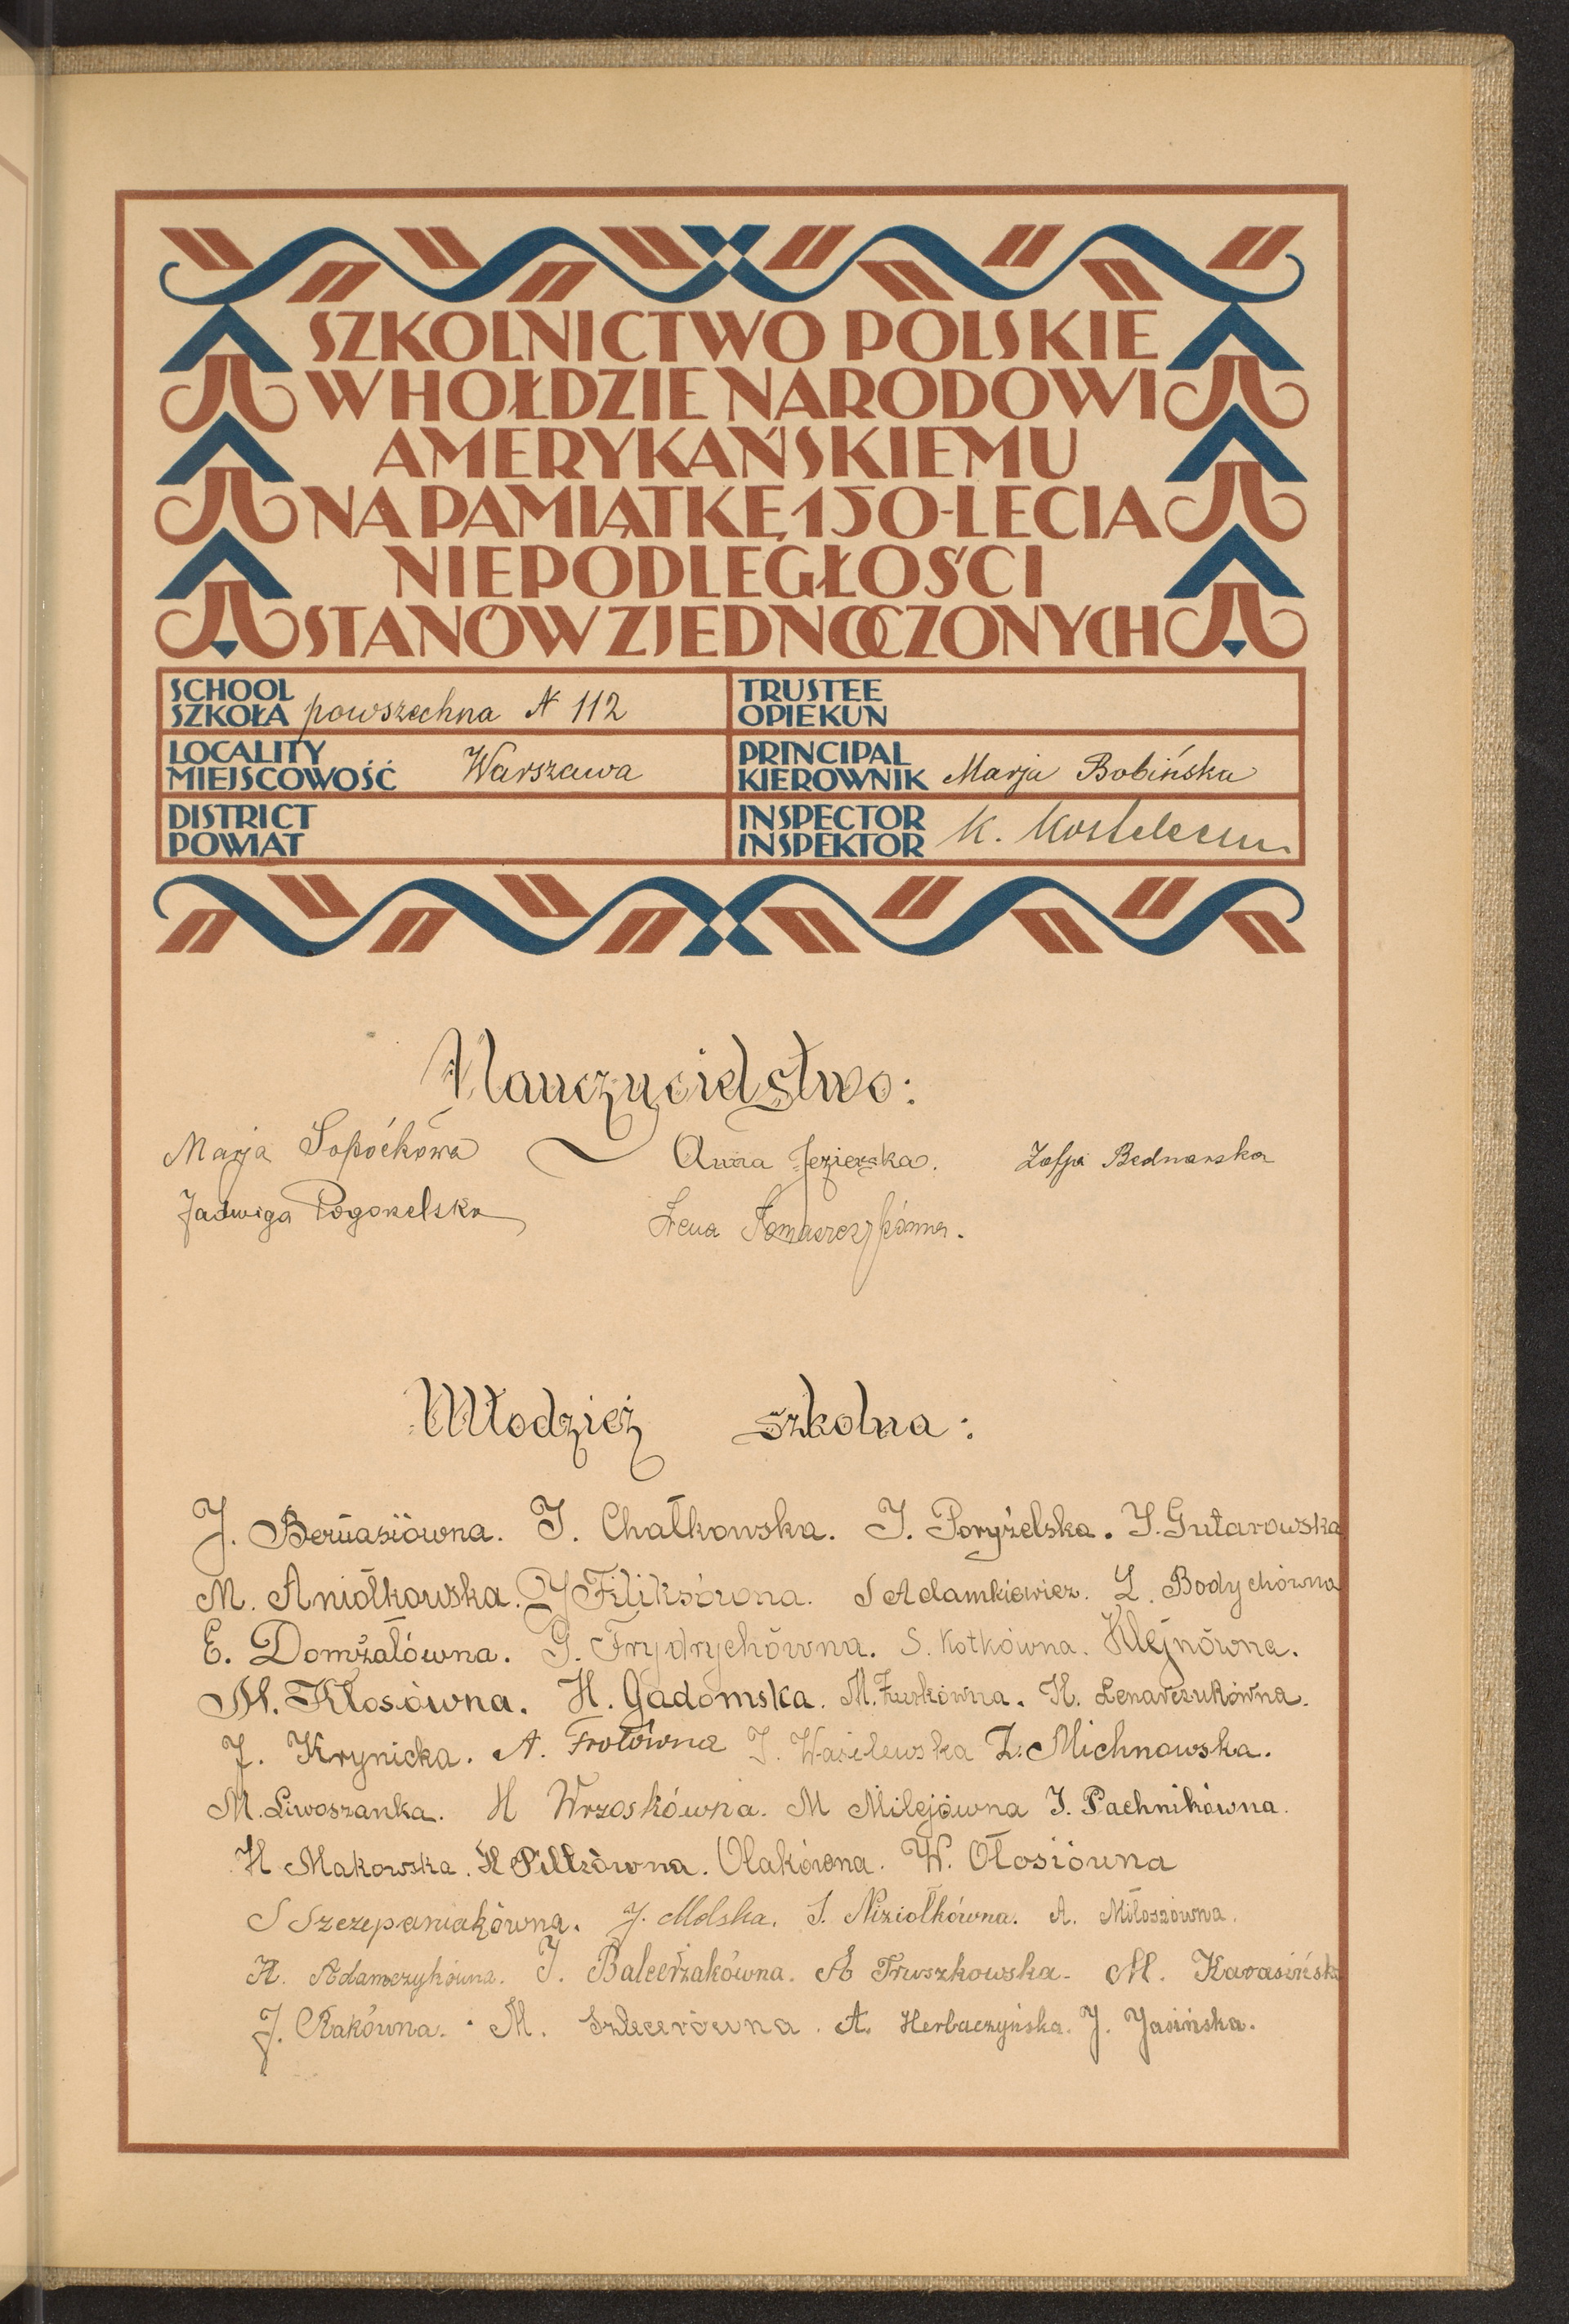 SZKOLNICTWO POLSKIE
W HOŁDZIE NARODOWI
AMERYKAŃSKIEMU
NA PAMIĄTKĘ 150-LECIA
NIEPODLEGŁOŚCI
STANÓW ZJEDNOCZONYCH
SCHOOL
SZKOŁA powszechna N 112
TRUSTEE
OPIEKUN
LOCALITY
MIEJSCOWOŚĆ Warszawa
PRINCIPAL
KIEROWNIK Marja Bobińska
DISTRICT
POWIAT
INSPECTOR
INSPEKTOR K.
Nauczycielstwo:
Marja Sopoćkówa Anna Jezierska. Zofja Bednarska
Jadwiga Pogorelska Irena
Młodzież szkolna:
J. Bernasiówna. J. Chałkowska. J. Poryżelska. J. Gutarowska
M. Aniołkowska. Filiksówna. S Adamkiewicz. Z. Bodychówna
E. Domżałówna. G. Frydrychówna. S. Kotkówna. Klejnówna.
M. Kłosówna. H. Gadomska. M. Żurkówna. H. Lenarczukówna.
J. Krynicka. A. Frotówna J. Wasilewska Z. Michnowska.
M. Liwoszanka. H Wrzoskówna. M Milejówna J. Pachnikówna.
H Makowska. H Piltzówna. Olakówna. W. Ołosiówna
S Szczepaniakówna. J. Molska. S. Niziołkówna. A. Miłoszówna.
H. Adamczykówna. J. Balcerzakówna. A Truszkowska. M. Karasińska
J. Rakówna. M. A. Herbaczyńska. J. Jasińska.